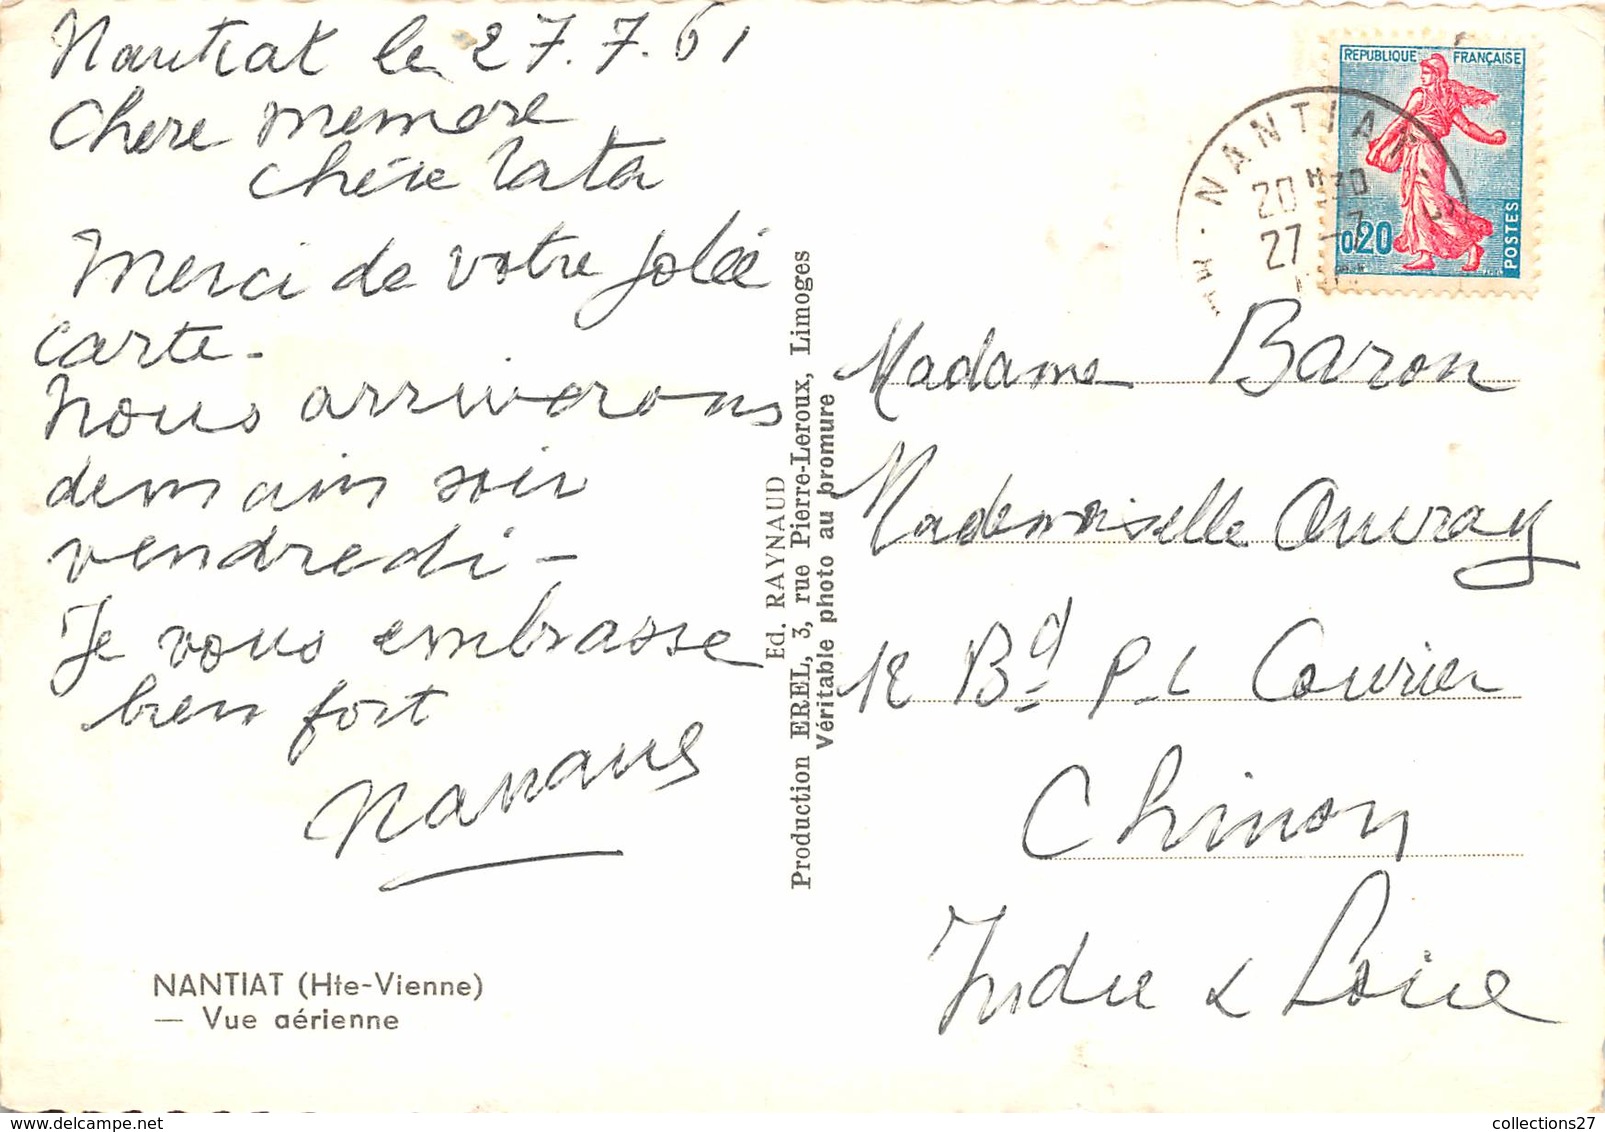 Nantiat le 27.7.61
Chere memere
chère Tata
Merci de votre jolie
carte-
Nous arriverons
demain soir
vendredi-
Je vous embrasse
bien fort
NANTIAT (Hte-Vienne)
— Vue aérienne
Ed. RAYNAUD
Production EREL, 3, rue Pierre-Leroux, Limoges
Véritable photo au bromure
REPUBLIQUE FRANÇAISE
0,20
POSTES
NANTIAT
20 H30
27-7
Madame Baron
Mademoiselle Auvray
12 Bd P-L Courier
Chinon
Indre & Loire
collections27